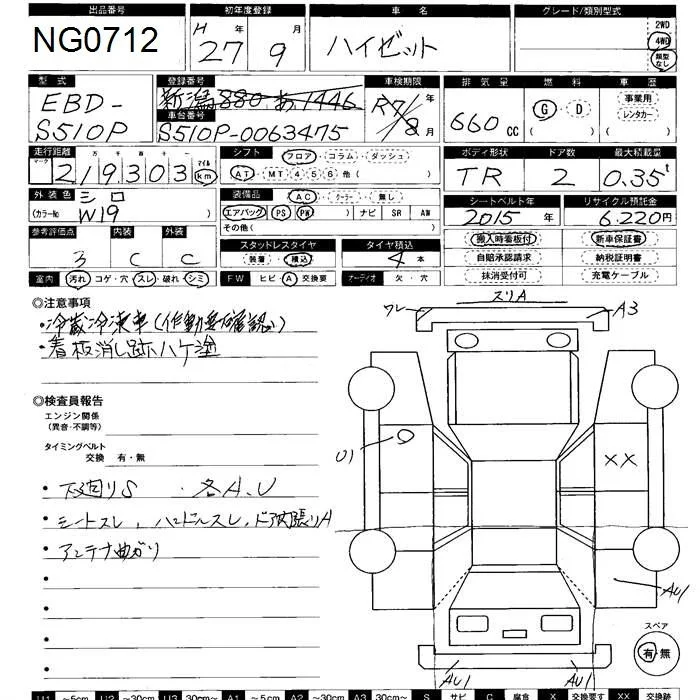 出品番号 初年度登録 車名 グレード/類別型式
NG0712 H 27年 9月 ハイゼット 2WD 4WD 類型なし
型式 登録番号 車検期限 排気量 燃料 車歴
EBD-S510P 新潟 880 あ 1446 R7/8 年 月 660cc G・D 事業用 レンタカー
車台番号
S510P-0063475
走行距離 シフト フロア・コラム・ダッシュ ボディ形状 ドア数 最大積載量
マーク 十万千百十 マイル
219303 km AT・MT 4 5 6 他( ) TR 2 0.35t
外装色 シロ 装備品 AC・クーラー・無し シートベルト年 リサイクル預託金
(カラーNo W19 エアバッグ PS PW ナビ SR AW 2015年 6,220円
その他( )
参考評価点 内装 外装 スタッドレスタイヤ タイヤ積込 搬入時看板付 新車保証書
3 C C 装着・積込 4本 自賠承認請求 納税証明書
室内 汚れ・コゲ・穴・スレ・破れ・シミ FW ヒビ・A・交換要 オーディオ 欠・穴 抹消受付可 充電ケーブル
◎注意事項
・冷蔵冷凍車(作動要確認)
・看板消し跡ハケ塗
◎検査員報告
エンジン関係
(異音・不調等)
タイミングベルト
交換 有・無
・下廻りS ・各A、U
・シートスレ、ハンドルスレ、ドア内張りA
・アンテナ曲がり
ワレ スリA A3
U1 XX
AU1
AU1 AU1
スペア
有・無
U1 ~5cm U2 ~30cm U3 30cm~ A1 ~5cm A2 ~30cm A3 30cm~ S サビ C 腐食 X 交換要す XX 交換跡